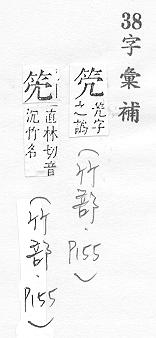 38 字彙補
字之譌
(竹部·P155)
直林切音
沉竹名
(竹部·P155)